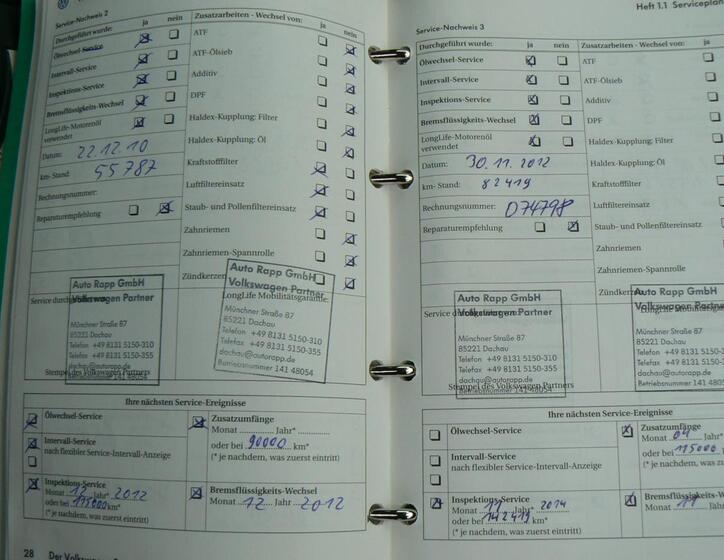 Service-Nachweis 2
Durchgeführt wurde: ja nein
Ölwechsel-Service
Intervall-Service
Inspektions-Service
Bremsflüssigkeits-Wechsel
LongLife-Motorenöl
verwendet
Datum: 22.12.10
km- Stand: 55787
Rechnungsnummer:
Reparaturempfehlung
Zusatzarbeiten - Wechsel von: ja nein
ATF
ATF-Ölsieb
Additiv
DPF
Haldex-Kupplung: Filter
Haldex-Kupplung: Öl
Kraftstofffilter
Luftfiltereinsatz
Staub- und Pollenfiltereinsatz
Zahnriemen
Zahnriemen-Spannrolle
Zündkerzen
Service durchgeführt
Auto Rapp GmbH
Volkswagen Partner
Münchner Straße 87
85221 Dachau
Telefon +49 8131 5150-310
Telefax +49 8131 5150-355
dachau@autorapp.de
Betriebsnummer 141 48054
Stempel des Volkswagen Partners
Auto Rapp GmbH
Volkswagen Partner
LongLife Mobilitätsgarantie
Münchner Straße 87
85221 Dachau
Telefon +49 8131 5150-310
Telefax +49 8131 5150-355
dachau@autorapp.de
Betriebsnummer 141 48054
Ihre nächsten Service-Ereignisse
Ölwechsel-Service
Intervall-Service
nach flexibler Service-Intervall-Anzeige
Inspektions-Service
Monat 12 Jahr* 2012
oder bei 115000 km*
(* je nachdem, was zuerst eintritt)
Zusatzumfänge
Monat ............ Jahr* ............
oder bei 90000 km*
(* je nachdem, was zuerst eintritt)
Bremsflüssigkeits-Wechsel
Monat 12 Jahr 2012
28 Der
Heft 1.1 Serviceplan
Service-Nachweis 3
Durchgeführt wurde: ja nein
Ölwechsel-Service
Intervall-Service
Inspektions-Service
Bremsflüssigkeits-Wechsel
LongLife-Motorenöl
verwendet
Datum: 30.11.2012
km- Stand: 82419
Rechnungsnummer: 074798
Reparaturempfehlung
Zusatzarbeiten - Wechsel von: ja
ATF
ATF-Ölsieb
Additiv
DPF
Haldex-Kupplung: Filter
Haldex-Kupplung: Öl
Kraftstofffilter
Luftfiltereinsatz
Staub- und Pollenfiltereinsatz
Zahnriemen
Zahnriemen-Spannrolle
Zündkerzen
Service
Auto Rapp GmbH
Volkswagen Partner
Münchner Straße 87
85221 Dachau
Telefon +49 8131 5150-310
Telefax +49 8131 5150-355
dachau@autorapp.de
Betriebsnummer 141 48054
Stempel des Volkswagen Partners
Auto Rapp GmbH
Volkswagen Partner
Münchner Straße 87
85221 Dachau
Telefon +49 8131 5150-
Telefax +49 8131 5150-
dachau@autorapp.de
Betriebsnummer 141 480
Ihre nächsten Service-Ereignisse
Ölwechsel-Service
Intervall-Service
nach flexibler Service-Intervall-Anzeige
Inspektions-Service
Monat 11 Jahr* 2014
oder bei 142419 km*
(* je nachdem, was zuerst eintritt)
Zusatzumfänge
Monat 04 Jahr*
oder bei 115000
(* je nachdem, was zuerst
Bremsflüssigkeits-Wech
Monat 11 Jahr